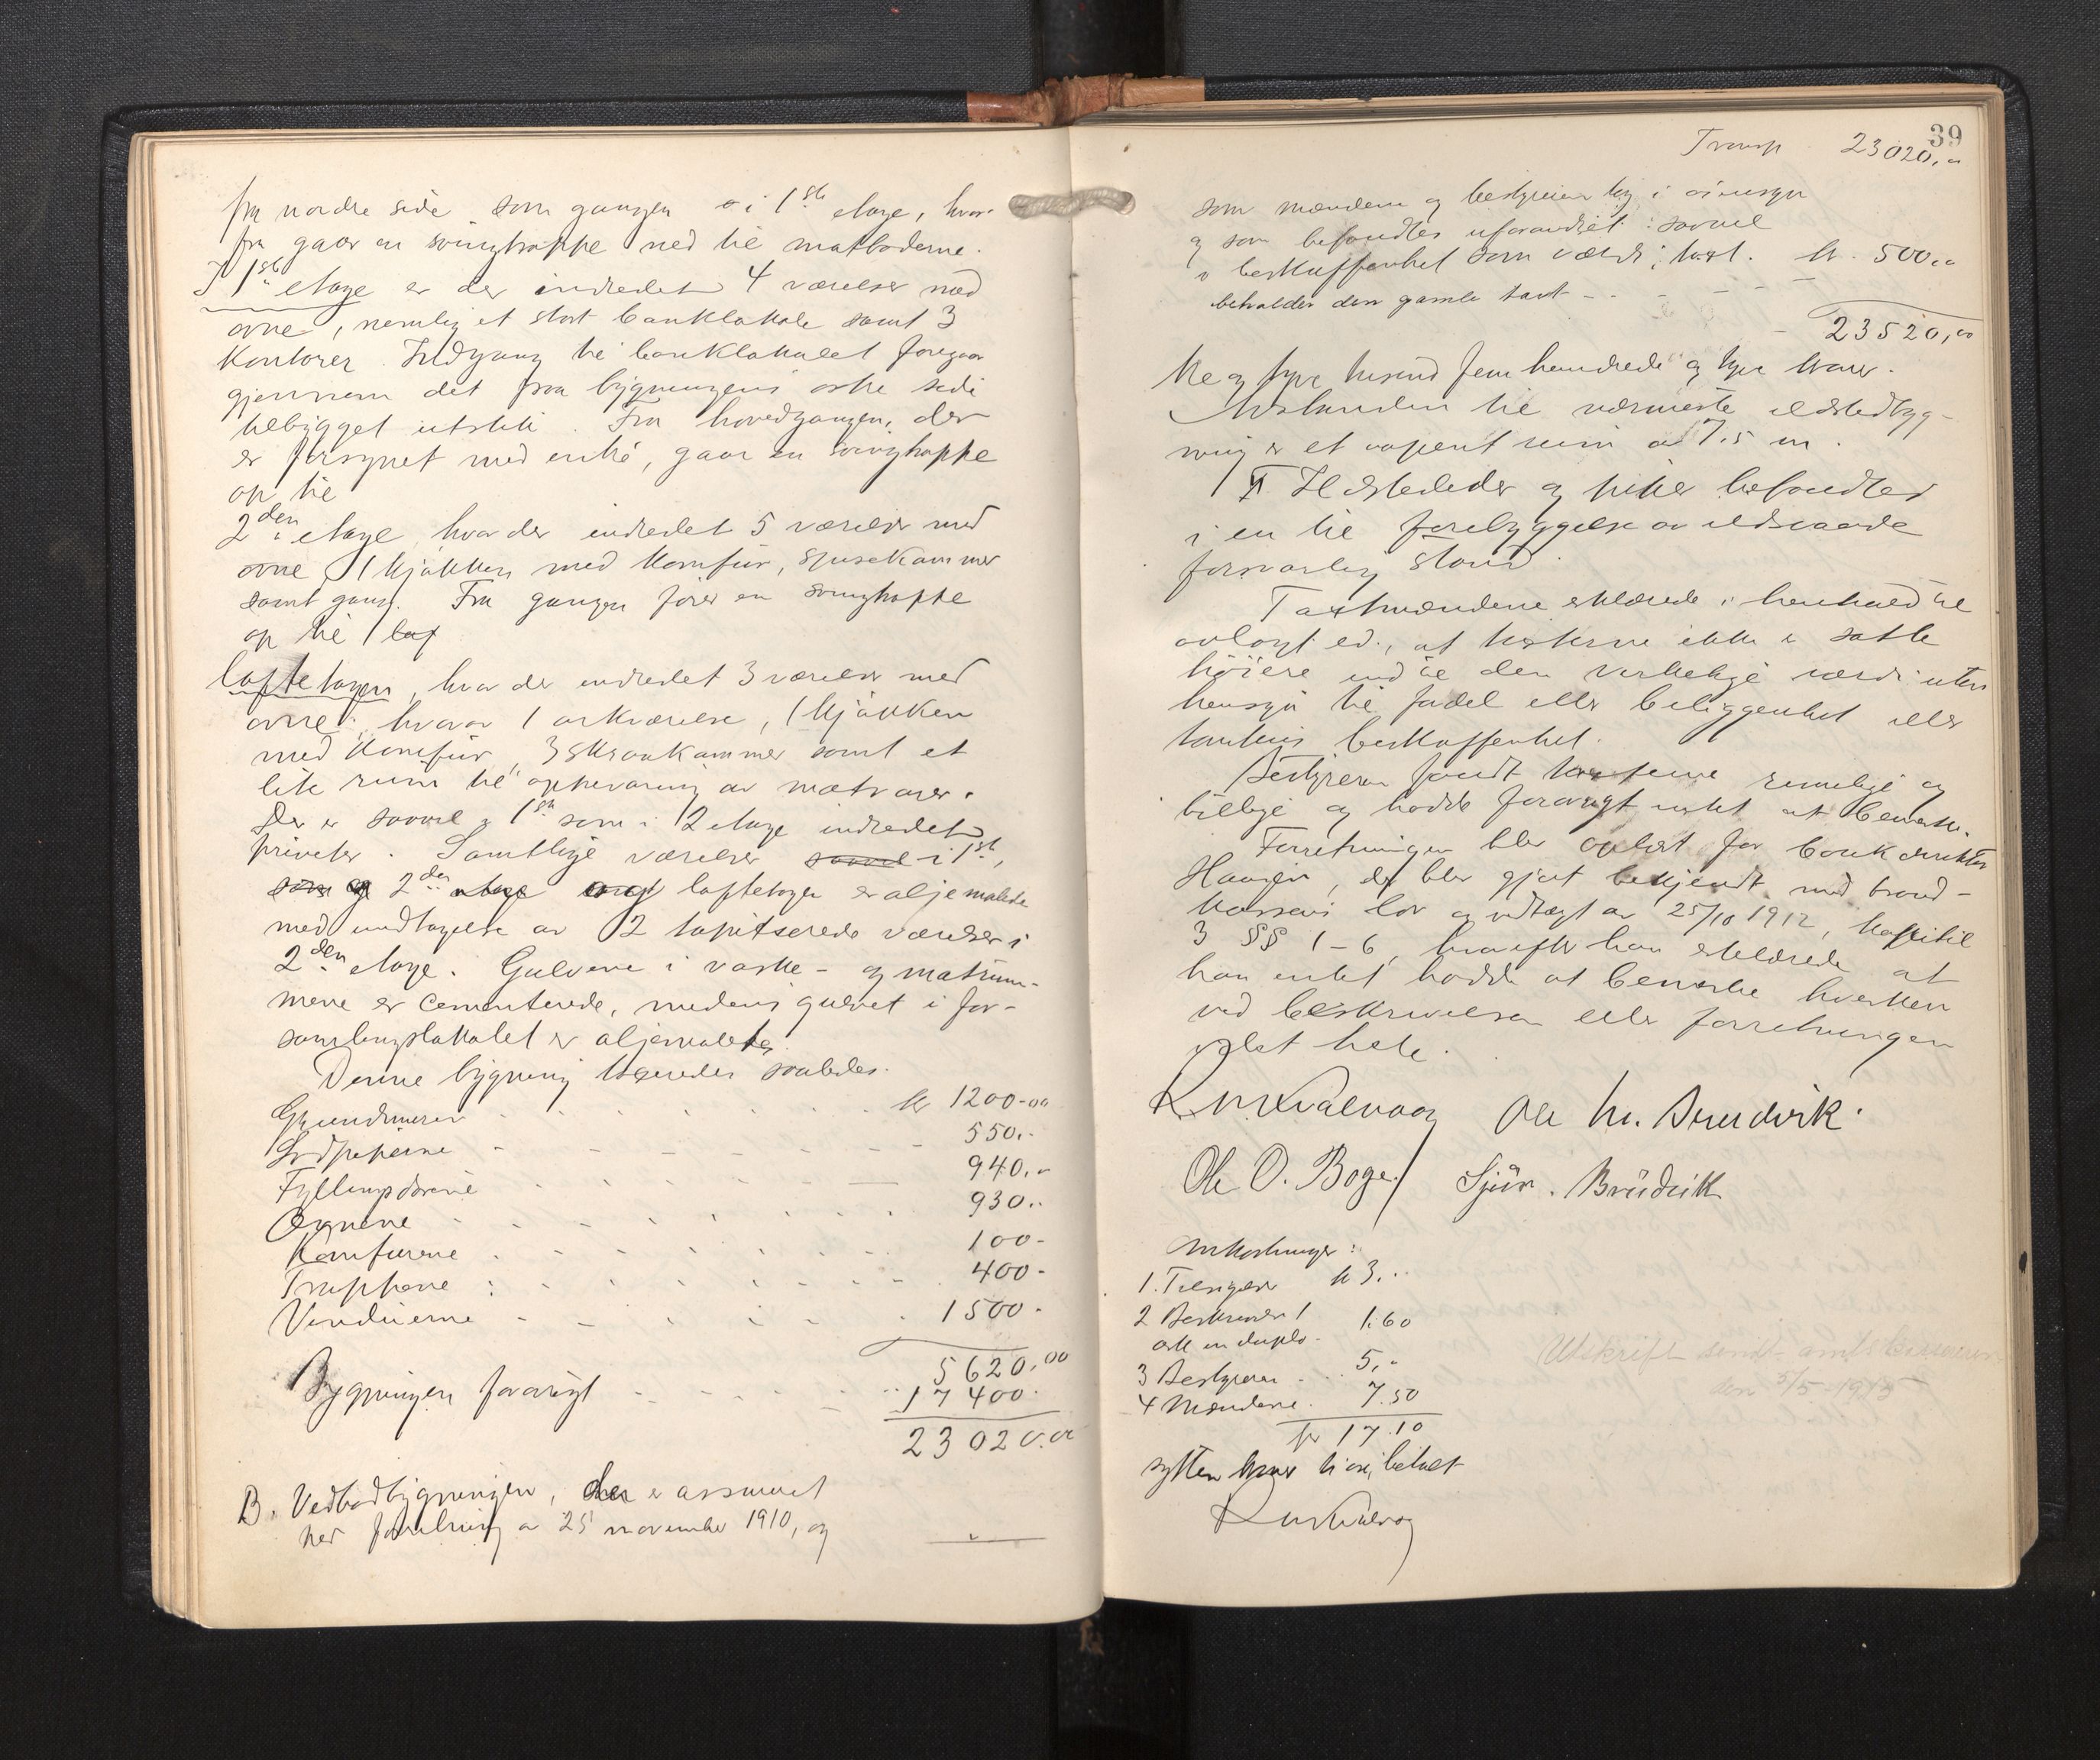 fra nordre side som gangen i 1ste etage, hvor-
fra gaar en svingtrappe ned til matboderne.
I 1ste etage er der indredet 4 værelser med
ovne, nemlig et stort banklokale samt 3
Kontorer. Indgang til banklokalet foregaar
gjennem det fra bygningens østre side
tilbygget utskik. Fra hovedgangen, der
er forsynet med entré, gaar en svingtrappe
op til
2den etage, hvor der indredet 5 værelser med
ovne, 1 kjøkken med komfur, spisekammer
samt gang. Fra gangen fører en svingtrappe
op til loft
loftetagen, hvor der indredet 3 værelser med
ovne, hvorav 1 arkværelse, 1 kjøkken
med komfur, 3 skraakammer samt et
lite rum til opbevaring av matvarer.
Der er saavel i 1ste som i 2 etage indredet
priveter. Samtlige værelser saavel i 1ste,
som og 2den etage og loftetagen er oljemalede
med undtagelse av 2 tapitserede værelser i
2den etage. Gulvene i vaske- og matrum-
mene er cementerede, medens gulvet i for-
samlingslokalet er oljemalede.
Denne bygning takseredes saaledes.
Grundmuren kr 1200-00
Ildpiperne 550.-
Fyllingsdørene 940.-
Ovnene 930.-
Komfurene 100-
Trapperne 400-
Vinduerne 1500-
5620.00
Bygningen forøvrigt 17400.
23020.00
B. Vedbodbygningen, der er assureret
ved forretning av 25 november 1910, og
39
Transp 23020,00
som mændene og bestyreren tog i øiensyn
og som befandtes uforandret saavel
i beskaffenhet som værdi; takst. kr. 500,00
beholder den gamle takst
23520,00
tre og tyve tusind fem hundrede og tyve kroner.
Avstanden til nærmeste ildstedbyg-
ning er et aapent rum av 7.5 m.
Ildsteder og piper befandtes
i en til forebyggelse av ildsvaade
forsvarlig stand.
Takstmændene erklærede i henhold til
avlagt ed, at taksterne ikke er satte
høiere end til den virkelige værdi uten
hensyn til fordel eller beliggenhet eller
tomtens beskaffenhet.
Bestyreren fandt taksterne rimelige og
billige og hadde forøvrigt intet at bemerke.
Forretningen blev oplæst for bankdirektør
Haugen, der blev gjort bekjendt med brand-
kassens lov og vedtægt av 25/10 1912, Kapitel
3 §§ 1-6, hvorefter han erklærede at
han intet hadde at bemerke hverken
ved beskrivelsen eller forretningen
i det hele.
Ole M. Brudvik.
Ole O. Boge Sjur. Brudvik
Omkostninger:
1. Tilsigelse kr 3.-
2 Beskrivelse 1
ark in duplo. 1.60
3 Bestyreren 5,-
4 Mændene. 7.50
kr 17.10
sytten kroner ti øre, betalt
Utskrift sendt amtskassereren
den 5/5-1915